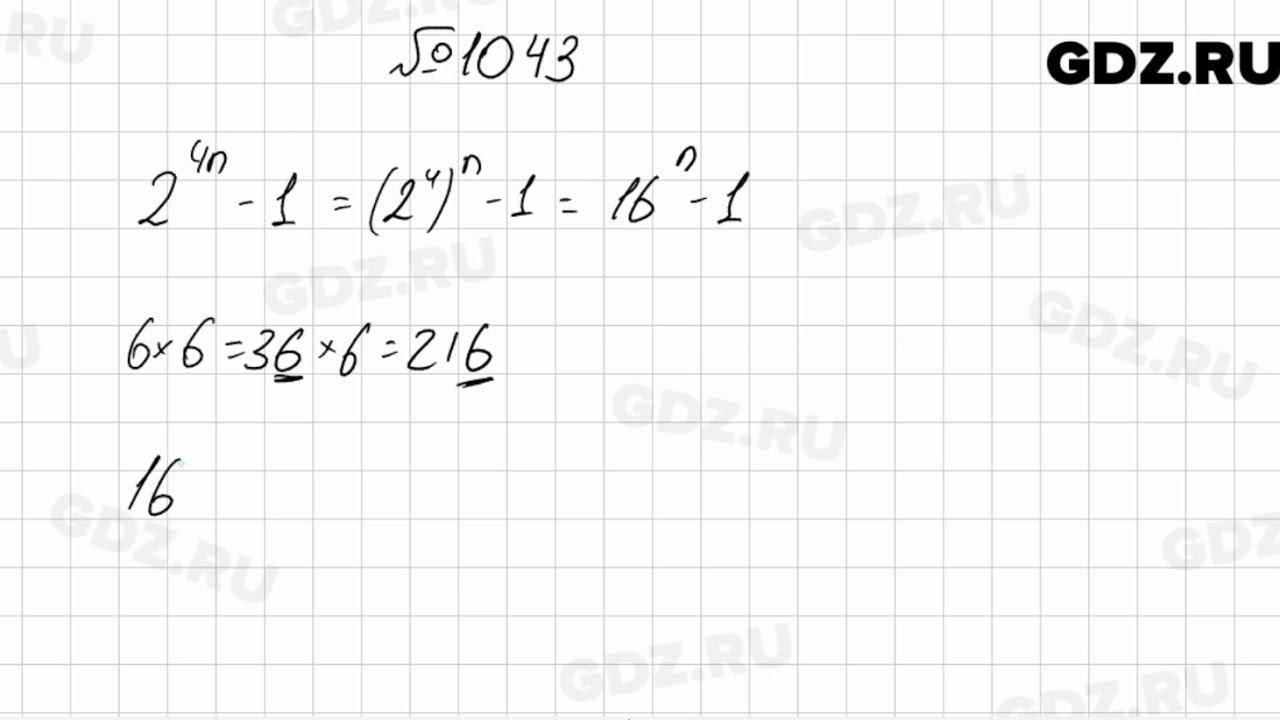 №1043
GDZ.RU
2^{4n} - 1 = (2^4)^n - 1 = 16^n - 1
6×6=36×6=216
16